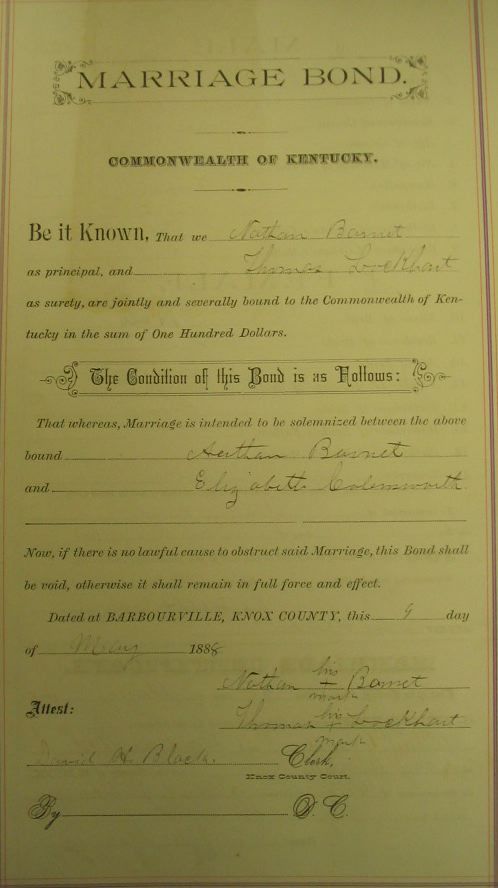 MARRIAGE BOND.
COMMONWEALTH OF KENTUCKY.
Be it Known, That we Nathan Barnet
as principal, and Thomas Lockhart
as surety, are jointly and severally bound to the Commonwealth of Ken-
tucky in the sum of One Hundred Dollars.
The Condition of this Bond is as Follows:
That whereas, Marriage is intended to be solemnized between the above
bound Nathan Barnet
and Elizabeth
Now, if there is no lawful cause to obstruct said Marriage, this Bond shall
be void, otherwise it shall remain in full force and effect.
Dated at BARBOURVILLE, KNOX COUNTY, this 9 day
of May 1888
his
Nathan + Barnet
mark
Attest:
his
Thomas + Lockhart
mark
David H. Black. Clerk,
Knox County Court.
By D. C.